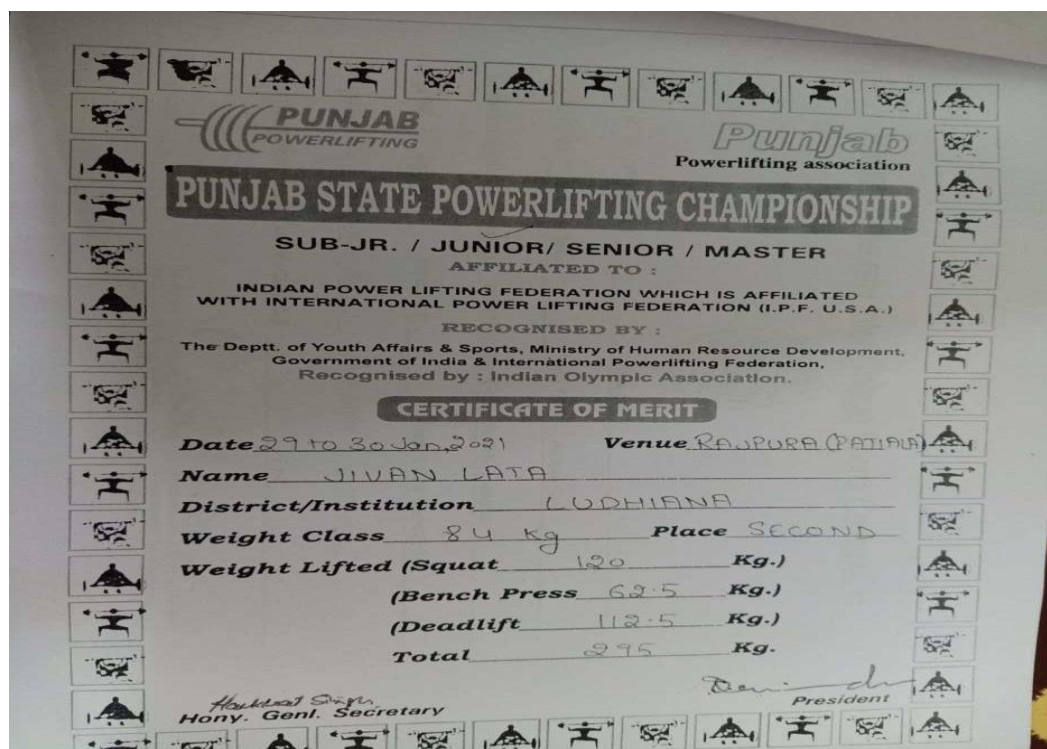 PUNJAB
POWERLIFTING
Punjab
Powerlifting association
PUNJAB STATE POWERLIFTING CHAMPIONSHIP
SUB-JR. / JUNIOR/ SENIOR / MASTER
AFFILIATED TO :
INDIAN POWER LIFTING FEDERATION WHICH IS AFFILIATED
WITH INTERNATIONAL POWER LIFTING FEDERATION (I.P.F. U.S.A.)
RECOGNISED BY :
The Deptt. of Youth Affairs & Sports, Ministry of Human Resource Development,
Government of India & International Powerlifting Federation,
Recognised by : Indian Olympic Association.
CERTIFICATE OF MERIT
Date 29 to 30 Jan, 2021 Venue RAJPURA (PATIALA)
Name JIVAN LATA
District/Institution LUDHIANA
Weight Class 84 Kg Place SECOND
Weight Lifted (Squat 120 Kg.)
(Bench Press 62.5 Kg.)
(Deadlift 112.5 Kg.)
Total 295 Kg.
Singh
Hony. Genl. Secretary
President